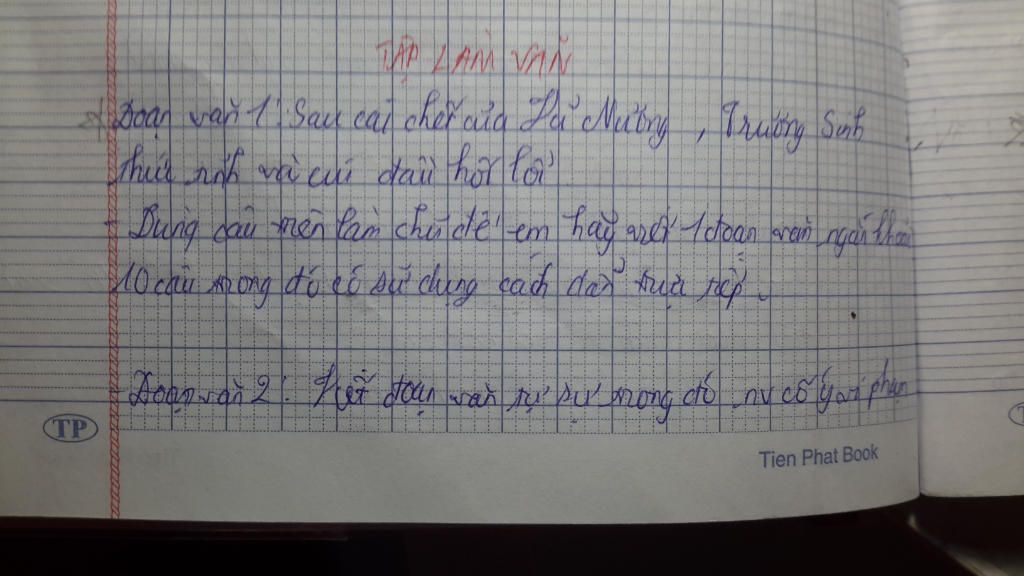 TẬP LÀM VĂN
Đoạn văn 1: Sau cái chết của Vũ Nương, Trương Sinh
thức tỉnh và cúi đầu hối lỗi
- Dùng câu trên làm chủ đề em hãy viết 1 đoạn văn ngắn khoảng
10 câu trong đó có sử dụng cách dẫn trực tiếp.
- Đoạn văn 2: Viết đoạn văn tự sự trong đó nv có ý
TP
Tien Phat Book